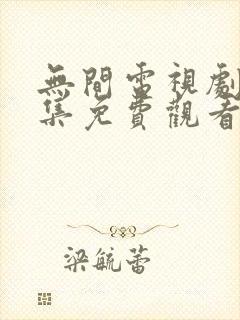 無間電視劇
集免費觀看
梁毓蕾